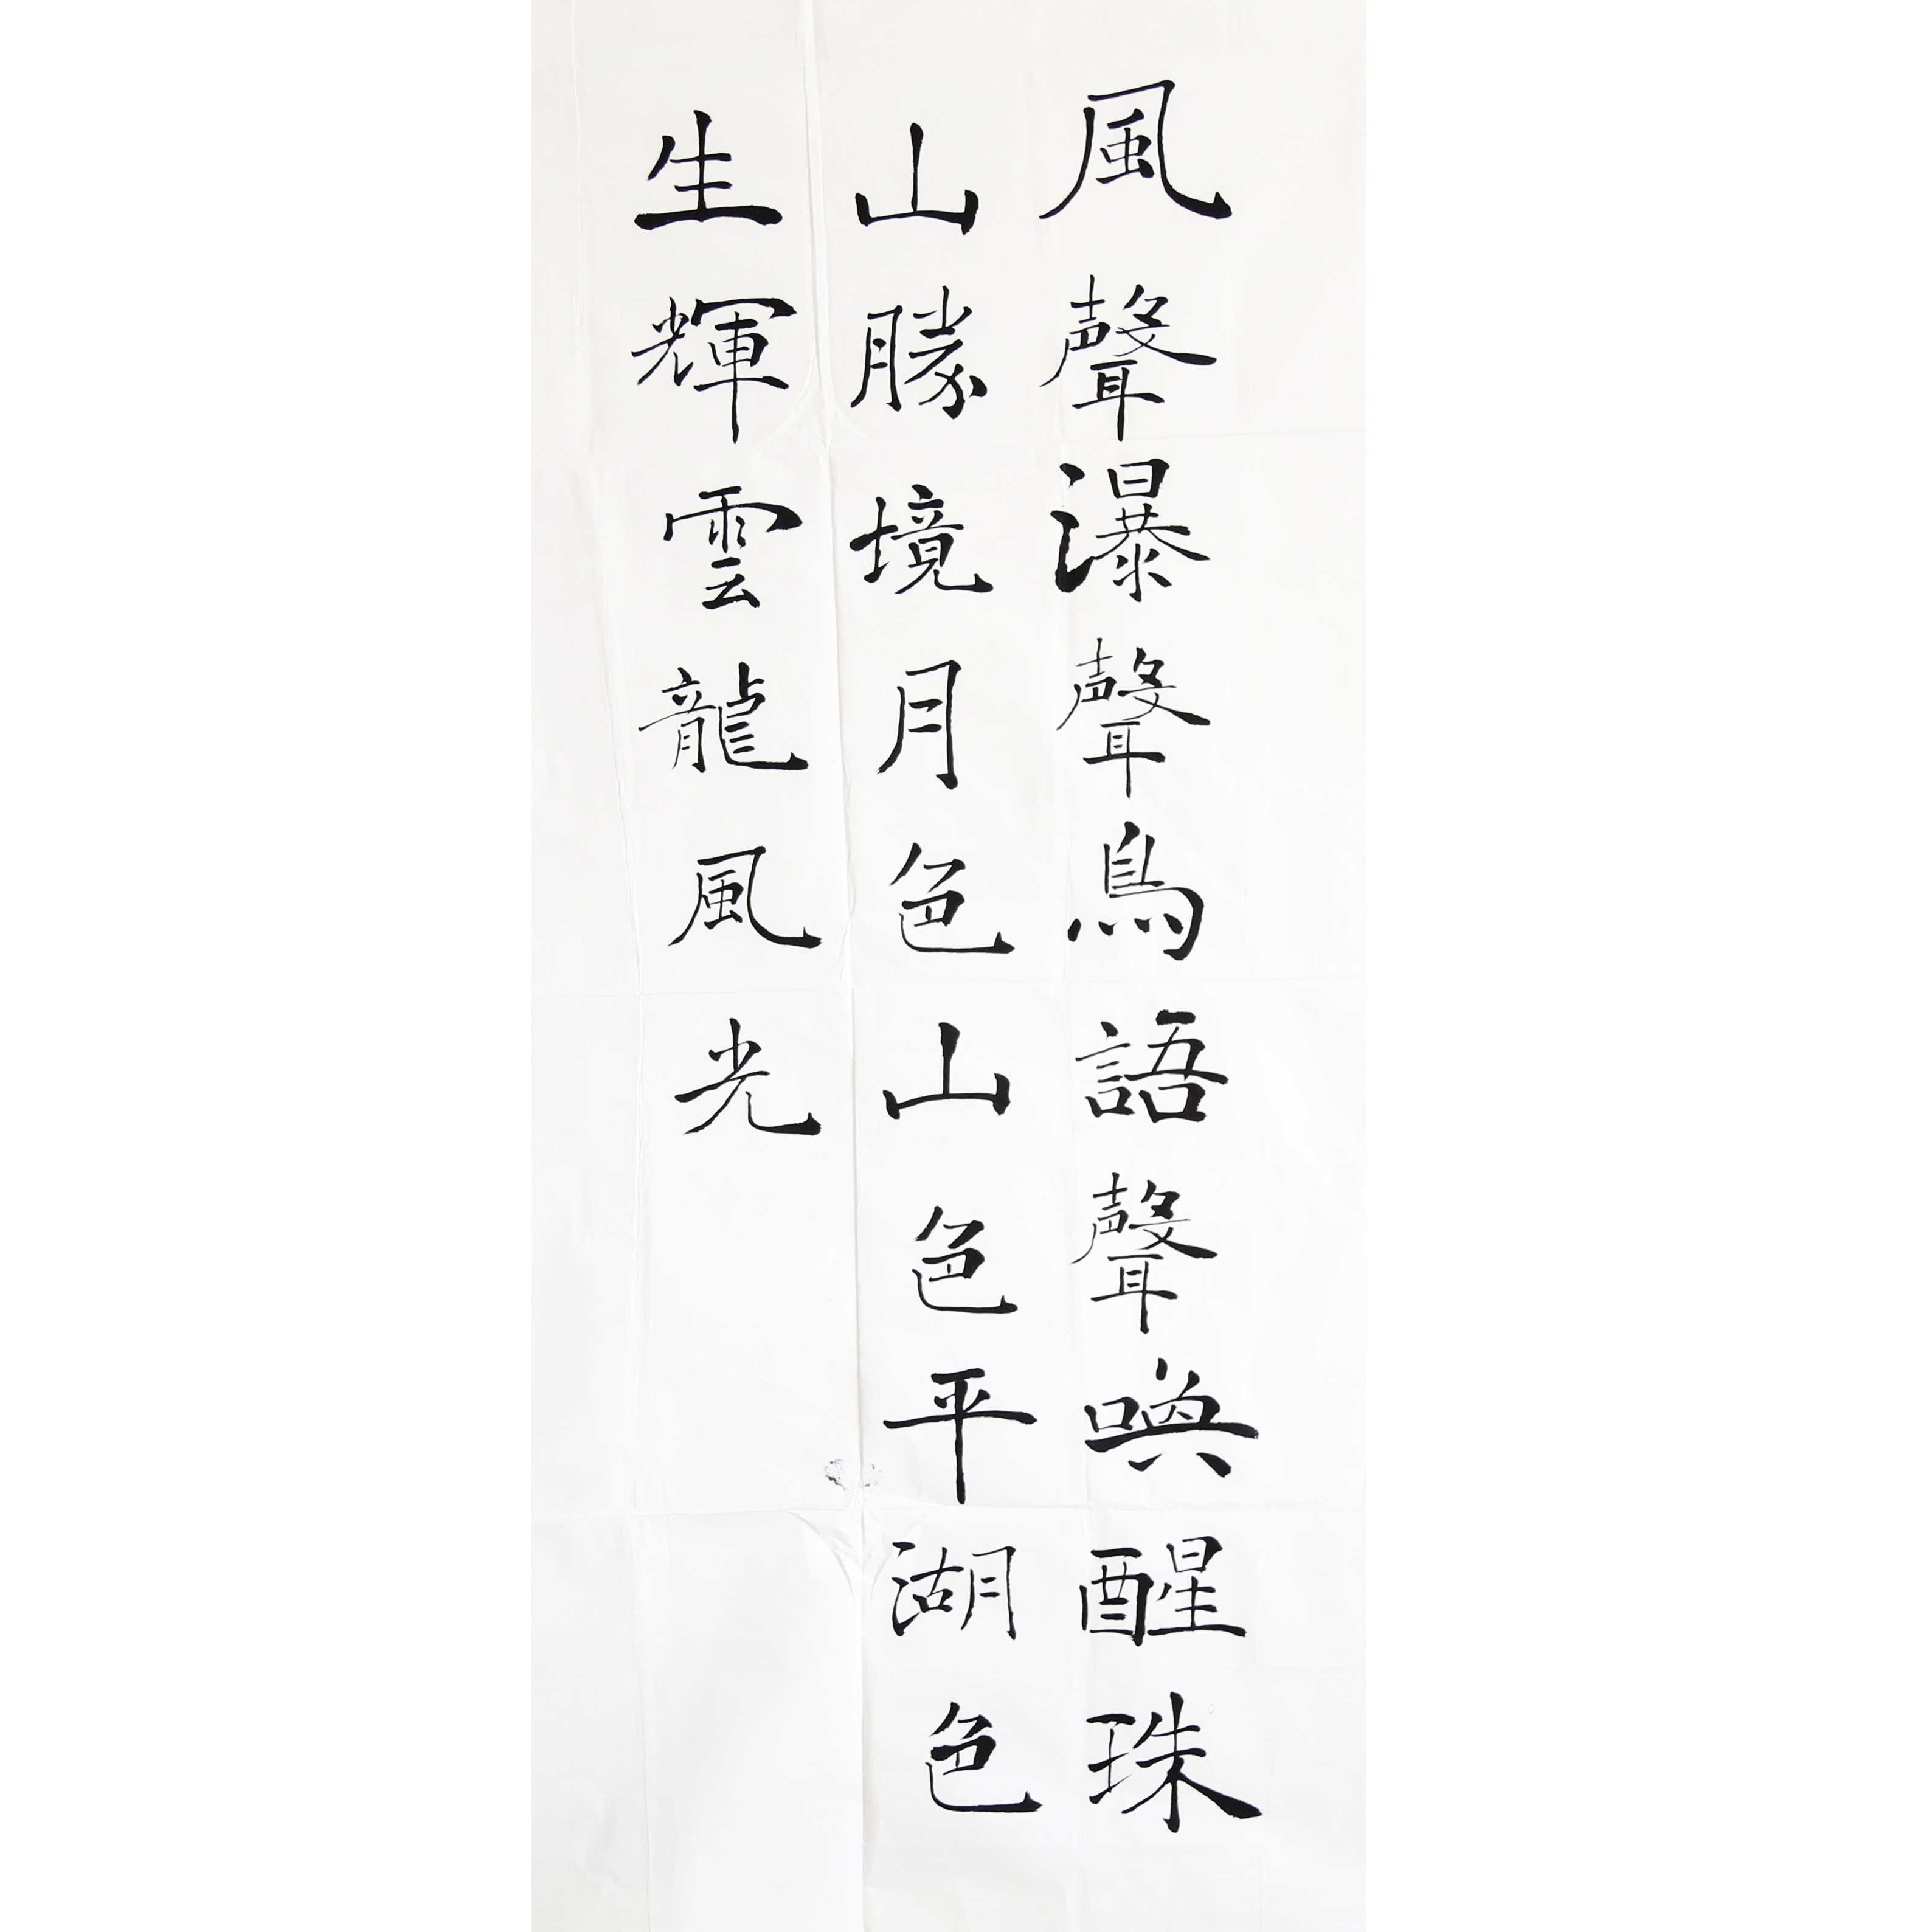 風聲瀑聲鳥語聲喚醒珠
山勝境月色山色平湖色
生輝雲龍風光